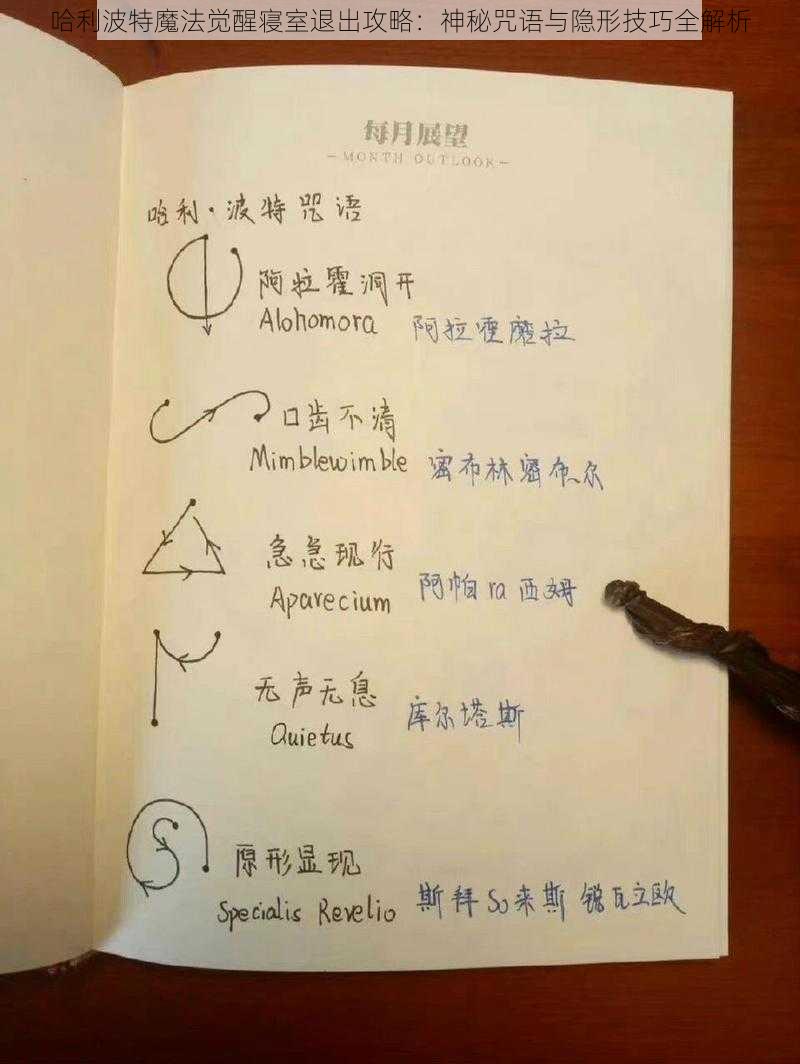 哈利波特魔法觉醒寝室退出攻略：神秘咒语与隐形技巧全解析
每月展望
MONTH OUTLOOK
哈利·波特咒语
阿拉霍洞开
Alohomora 阿拉霍磨拉
口齿不清
Mimblewimble 密布林密布尔
急急现行
Aparecium 阿帕ra西姆
无声无息
Quietus 库尔塔斯
原形显现
Specialis Revelio 斯拜So来斯 锐瓦立欧